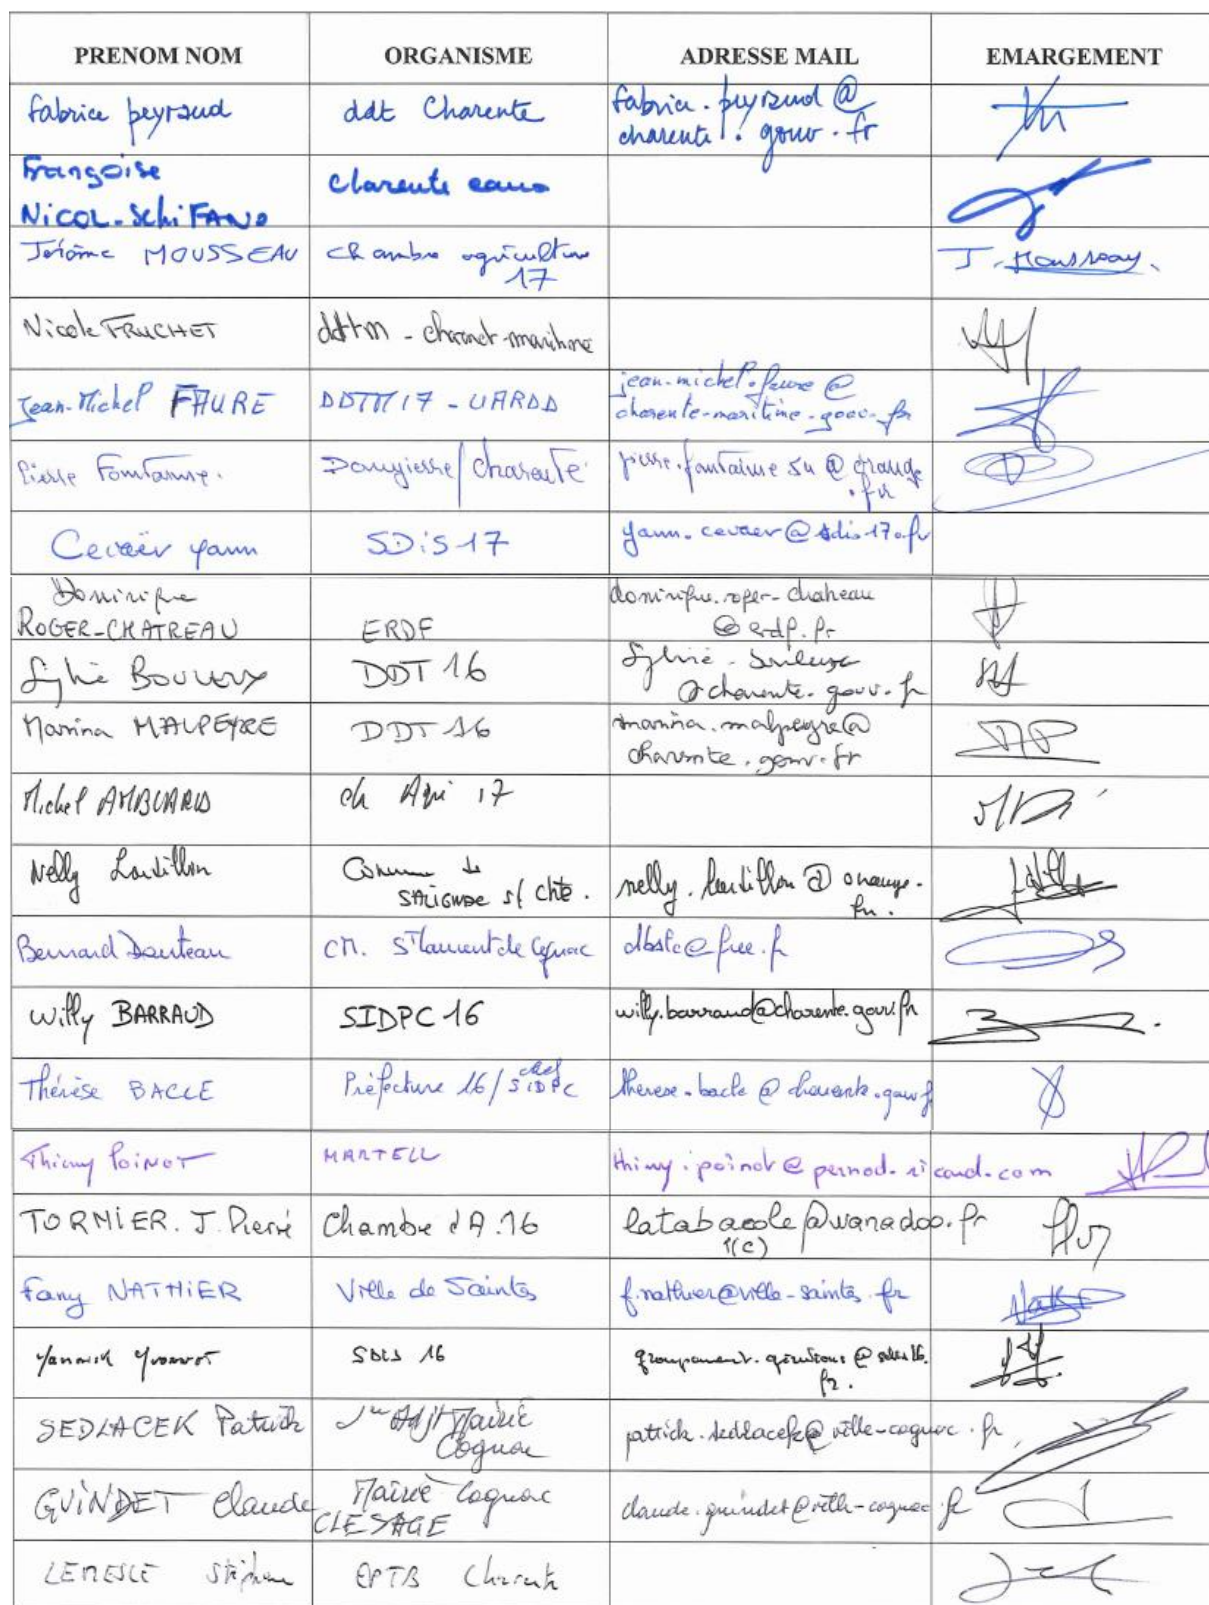 PRENOM NOM ORGANISME ADRESSE MAIL EMARGEMENT
fabrice peyraud ddt Charente fabrice.peyraud @
charente.gouv.fr
Françoise Charente eaux
NICOL-SchiFANO
Jérôme MOUSSEAU Chambre agriculture J. Mousseau.
17
Nicole FRUCHET ddtm - charent-maritime
Jean-Michel FAURE DDTM17 - UARDD jean-michel.faure @
charente-maritime.gouv.fr
Pierre Fontaine. /Charente pierre.fontaine @ orange
.fr
yann SDiS17 yann. @ sdis17.fr
Dominique dominique.roger-chatreau
ROGER-CHATREAU ERDF @ erdf.fr
Sylvie DDT 16 Sylvie.
@charente.gouv.fr
Marina MALPEYRE DDT 16 marina.malpeyre@
charente.gouv.fr
Michel AMBLARD ch Agri 17
Nelly Commune de nelly. @ orange.
s/ Chte. fr.
Bernard Dauteau CM. St Laurent de Cognac dbslc@free.fr
Willy BARRAUD SIDPC 16 willy.barraud@charente.gouv.fr
Thérèse BACLE Préfecture 16/ chef SIDPC therese.bacle @ charente.gouv.fr
Thierry POINOT MARTELL thierry.poinot@pernod-ricard.com
TORMIER. J. Pierre Chambre d'A.16 latabacole@wanadoo.fr
1(c)
Fany NATHIER Ville de Saintes f.nathier@ville-saintes.fr
Yannick Yvonnot SDIS 16 groupement. @ sdis16.
fr.
SEDLACEK Patrick Adjt Mairie patrick.sedlacek@ville-cognac.fr
Cognac
GUINDET Claude Mairie Cognac claude.guindet@ville-cognac.fr
CLE SAGE
LEMESLE Stéphane EPTB Charente